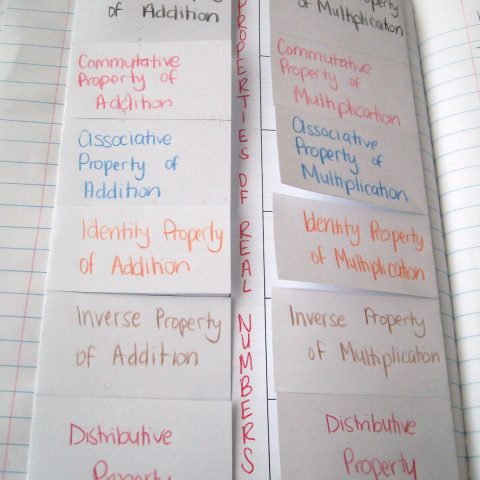 of Addition
Commutative
Property of
Addition
Associative
Property of
Addition
Identity Property
of Addition
Inverse Property
of Addition
Distributive
Property
PROPERTIES OF REAL NUMBERS
Property
of Multiplication
Commutative
Property of
Multiplication
Associative
Property of
Multiplication
Identity Property
of Multiplication
Inverse Property
of Multiplication
Distributive
Property